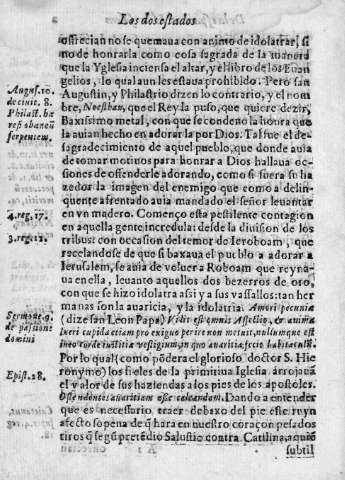 Los dos estados
ofrecian no se quemaua con animo de idolatrar, si
no de honrarla como cosa sagrada de la manera
que la Yglesia inciensa el altar, y el libro de los Euan
gelios, lo qual aun les estaua prohibido. Pero san
Augustin, y Philastrio dizen lo contrario, y el nom
bre, Noestban, que el Rey la puso, que quiere dezir,
Baxissimo metal, con que se condeno la honra que
la auian hecho en adorarla por Dios. Tal fue el de-
sagradecimiento de aquel pueblo, que donde auia
de tomar motiuos para honrar a Dios hallaua oc-
siones de offenderle adorando, como si fuera su ha
zedor la imagen del enemigo que como a delin-
quente afrentado auia mandado el señor leuantar
en vn madero. Començo esta pestilente contagion
en aquella gente incredula: desde la diuision de los
tribus: con occasion del temor de Ieroboam, que
recelandose de que si baxaua el pueblo a adorar a
Ierusalem, se auia de voluer a Roboam que reyna-
ua en ella, leuanto aquellos dos bezerros de oro,
con que se hizo idolatra assi y a sus vassallos: tan her
manas son la auaricia, y la idolatria. Amori pecuniæ
(dize san Leon Papa)
lucri cupida etiam pro exiguo perire non metuit, nullumque est
in eo corde iustitiæ vestigium, in quo auaritia fecit habitaculũ.
Por lo qual (como põdera el glorioso doctor S. Hie
ronymo) los fieles de la primitiua Iglesia arrojauã
el valor de sus haziendas a los pies de los apostoles.
Ostendentes auaritiam esse calcandam. Dando a entender
que es necessario traer debaxo del pie este ruyn
affecto so pena de q̃ hara en nuestro coraçon pesados
tiros q̃ segũ pretẽdio Salustio contra Catilina, aquẽ
subtil
Augus. 10.
de ciuit. 8.
Philast. hæ
resi
serpentem.
4. reg. 17.
3. reg. 12.
Sermone. 9.
de passione
domini
Epist. 28.